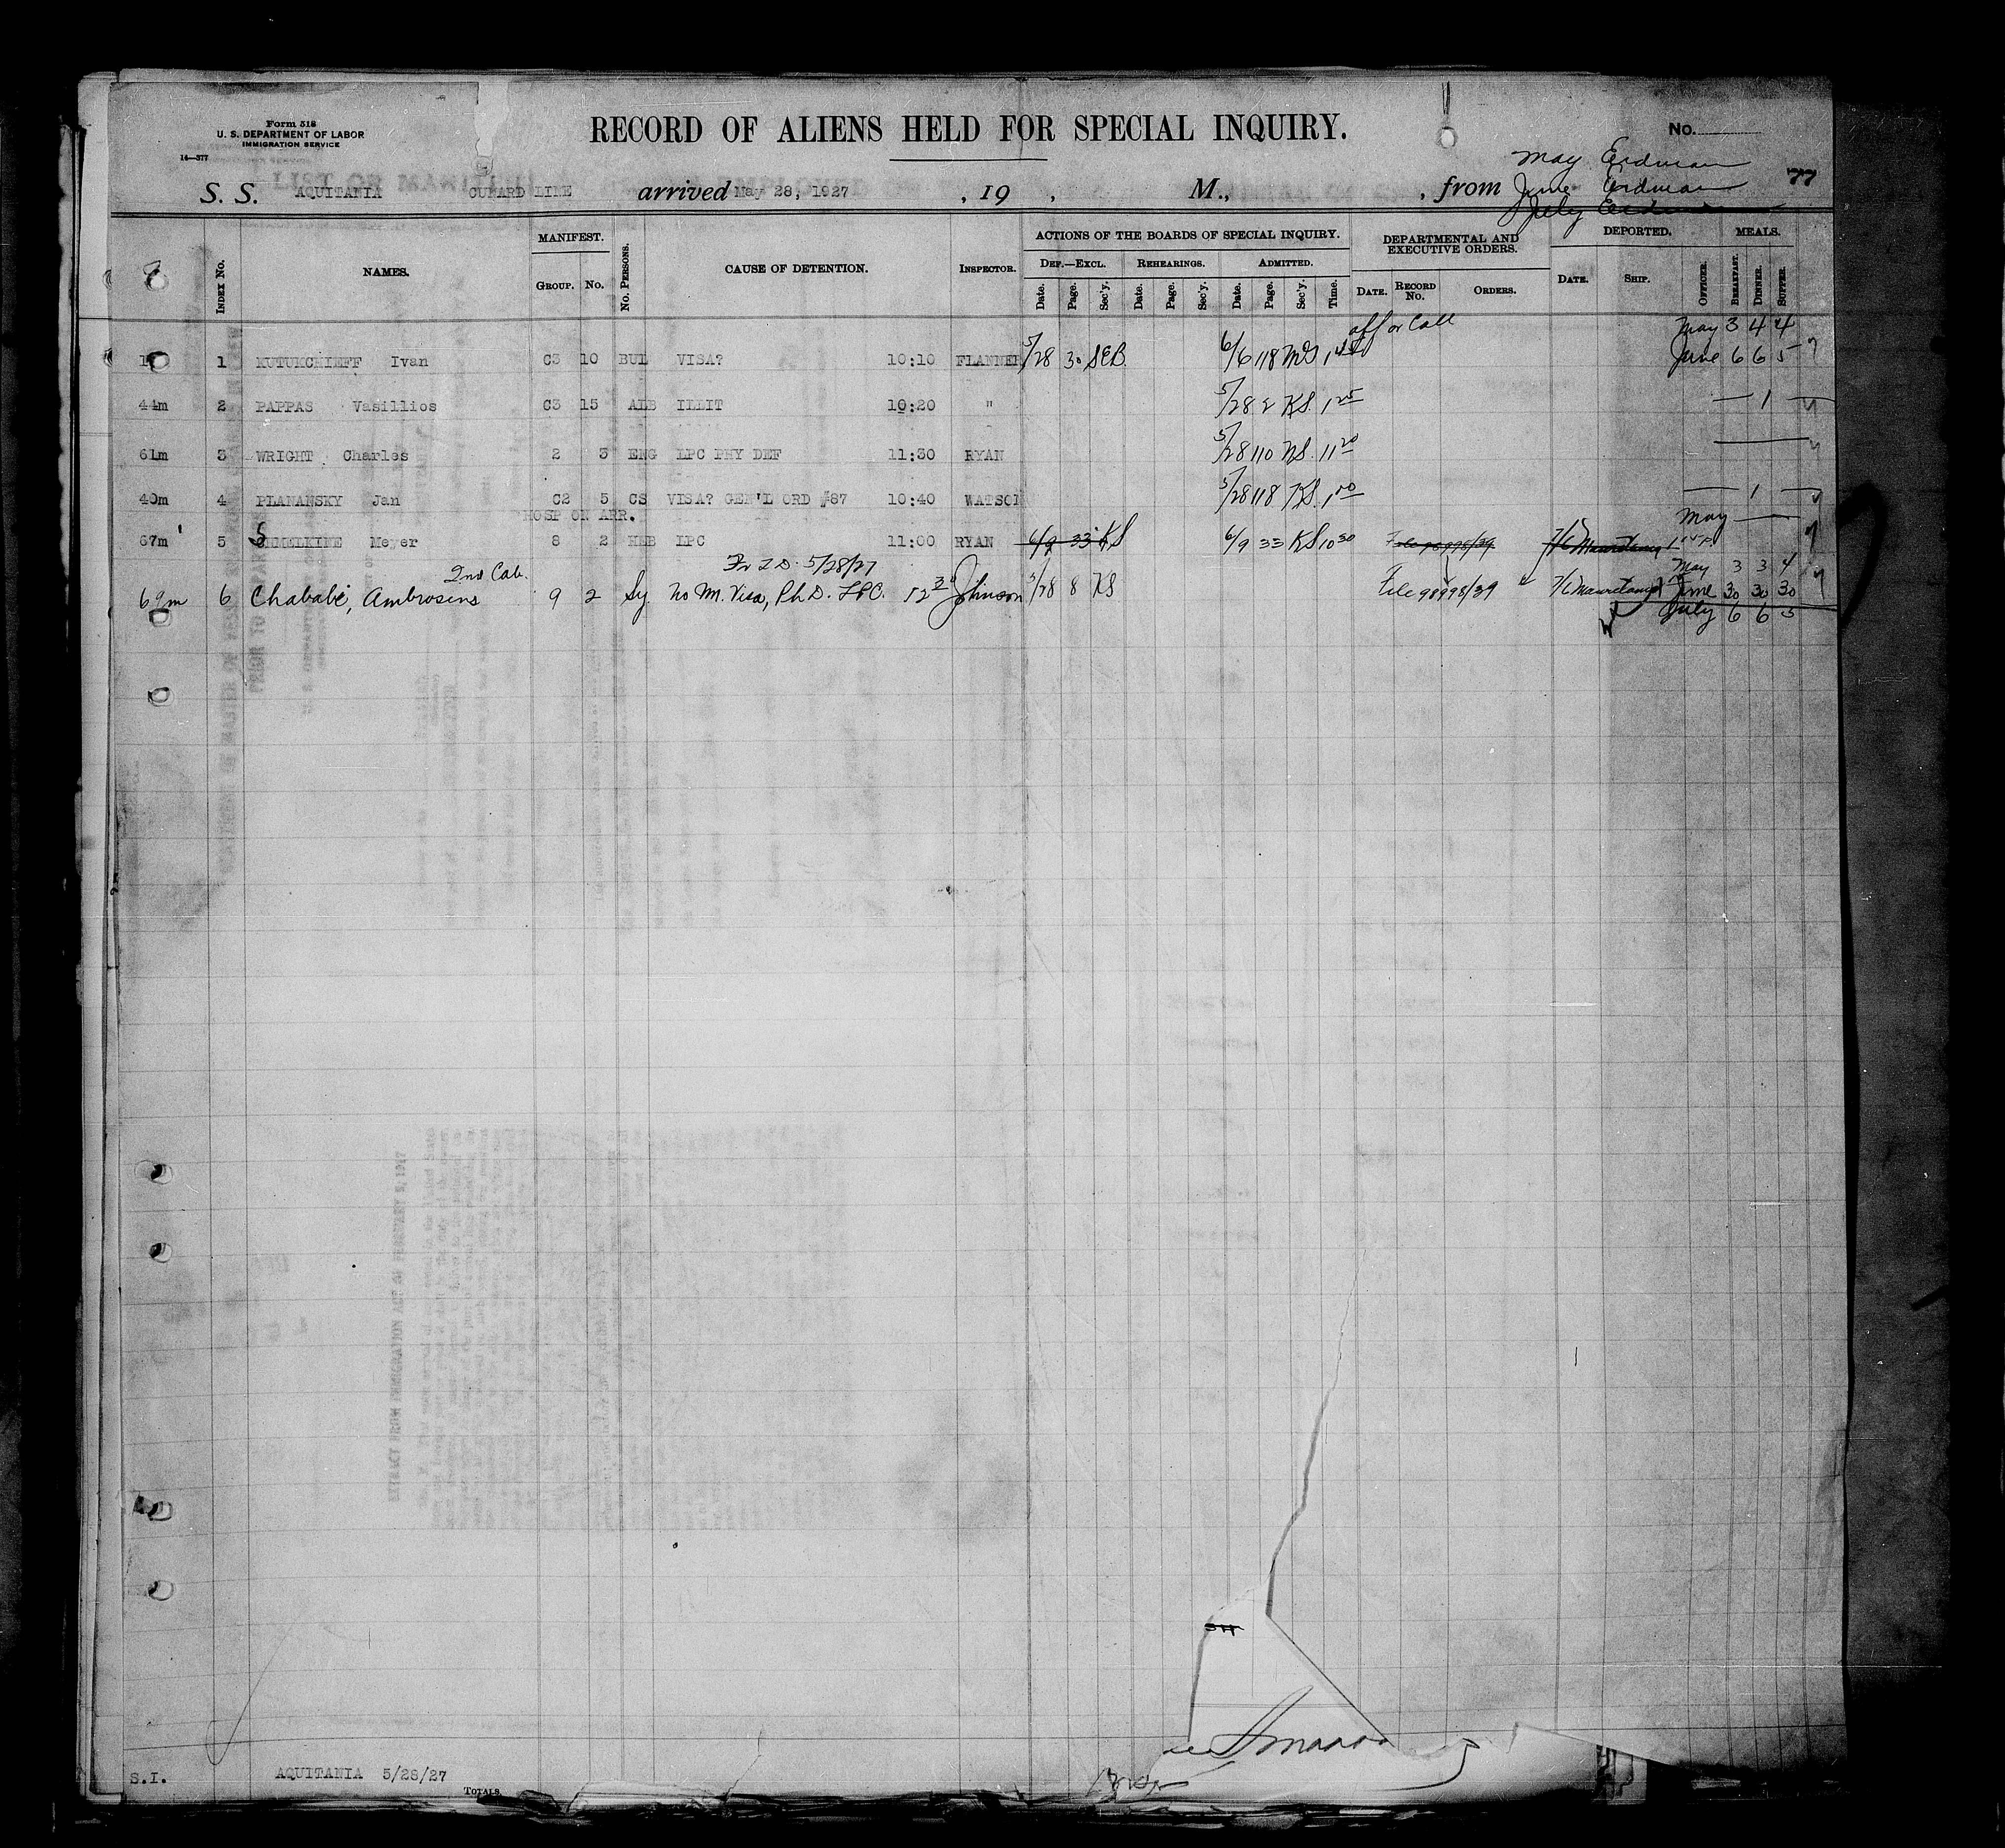 Form 518
U. S. DEPARTMENT OF LABOR
IMMIGRATION SERVICE
14—377
RECORD OF ALIENS HELD FOR SPECIAL INQUIRY.
No.
May Erdman
S. S. AQUITANIA CUNARD LINE arrived May 28, 1927 , 19 , M., , from June Erdman 77
July Erdman
INDEX No. NAMES. MANIFEST. GROUP. No. No. PERSONS. CAUSE OF DETENTION. INSPECTOR. ACTIONS OF THE BOARDS OF SPECIAL INQUIRY. DEPARTMENTAL AND EXECUTIVE ORDERS. DEPORTED. MEALS.
DEF.—EXCL. REHEARINGS. ADMITTED.
Date. Page. Sec'y. Date. Page. Sec'y. Date. Page. Sec'y. Time. DATE. RECORD No. ORDERS. DATE. SHIP. OFFICER. BREAKFAST. DINNER. SUPPER.
May 3 4 4
1 KUTUKCHIEFF Ivan C3 10 BUL VISA? 10:10 FLANNER 5/28 30 SEB. 6/6 118 June 6 6 5
44m 2 PAPPAS Vasillios C3 15 ALB ILLIT 10:20 " 5/28 2 KS. 1 25 — 1
61m 3 WRIGHT Charles 2 3 ENG LPC PHY DEF 11:30 RYAN 5/28 110 NS. 11 20
40m 4 PLANANSKY Jan C2 5 CS VISA? GEN'L ORD #87 10:40 WATSON 5/28 118 KS. 1 00 — 1 —
HOSP ON ARR. May —
67m 5 SHMELKINE Meyer 8 2 HEB LPC 11:00 RYAN 6/9 33 KS 6/9 33 KS 10 30 File 98998/39 7/6 Mauretania
2nd Cab. Fr I.D. 5/28/27 May 3 3 4
69m 6 Chababé, Ambrosins 9 2 Sy. No M. Visa, Ph.D. LPC. 12 30 Johnson 5/28 8 KS File 98998/39 7/6 Mauretania June 30 30 30
July 6 6 5
S.I. AQUITANIA 5/28/27
TOTALS.